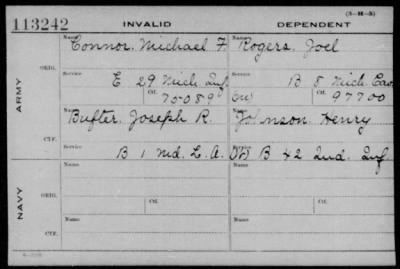 (3-H-3)
113242 INVALID DEPENDENT
Name Name
Connor, Michael F. Rogers, Joel
ORIG.
Service Service
E 29 Mich. Inf. B 8 Mich Cav.
Ctf. Ctf.
75089 (W) 97700
ARMY
Name Name
Bufter, Joseph R. Johnson, Henry
CTF.
Service Service
B 1 Md. L. A. (W) B 42 Ind. Inf
Name Name
ORIG.
Ctf. Ctf.
NAVY
Name Name
CTF.